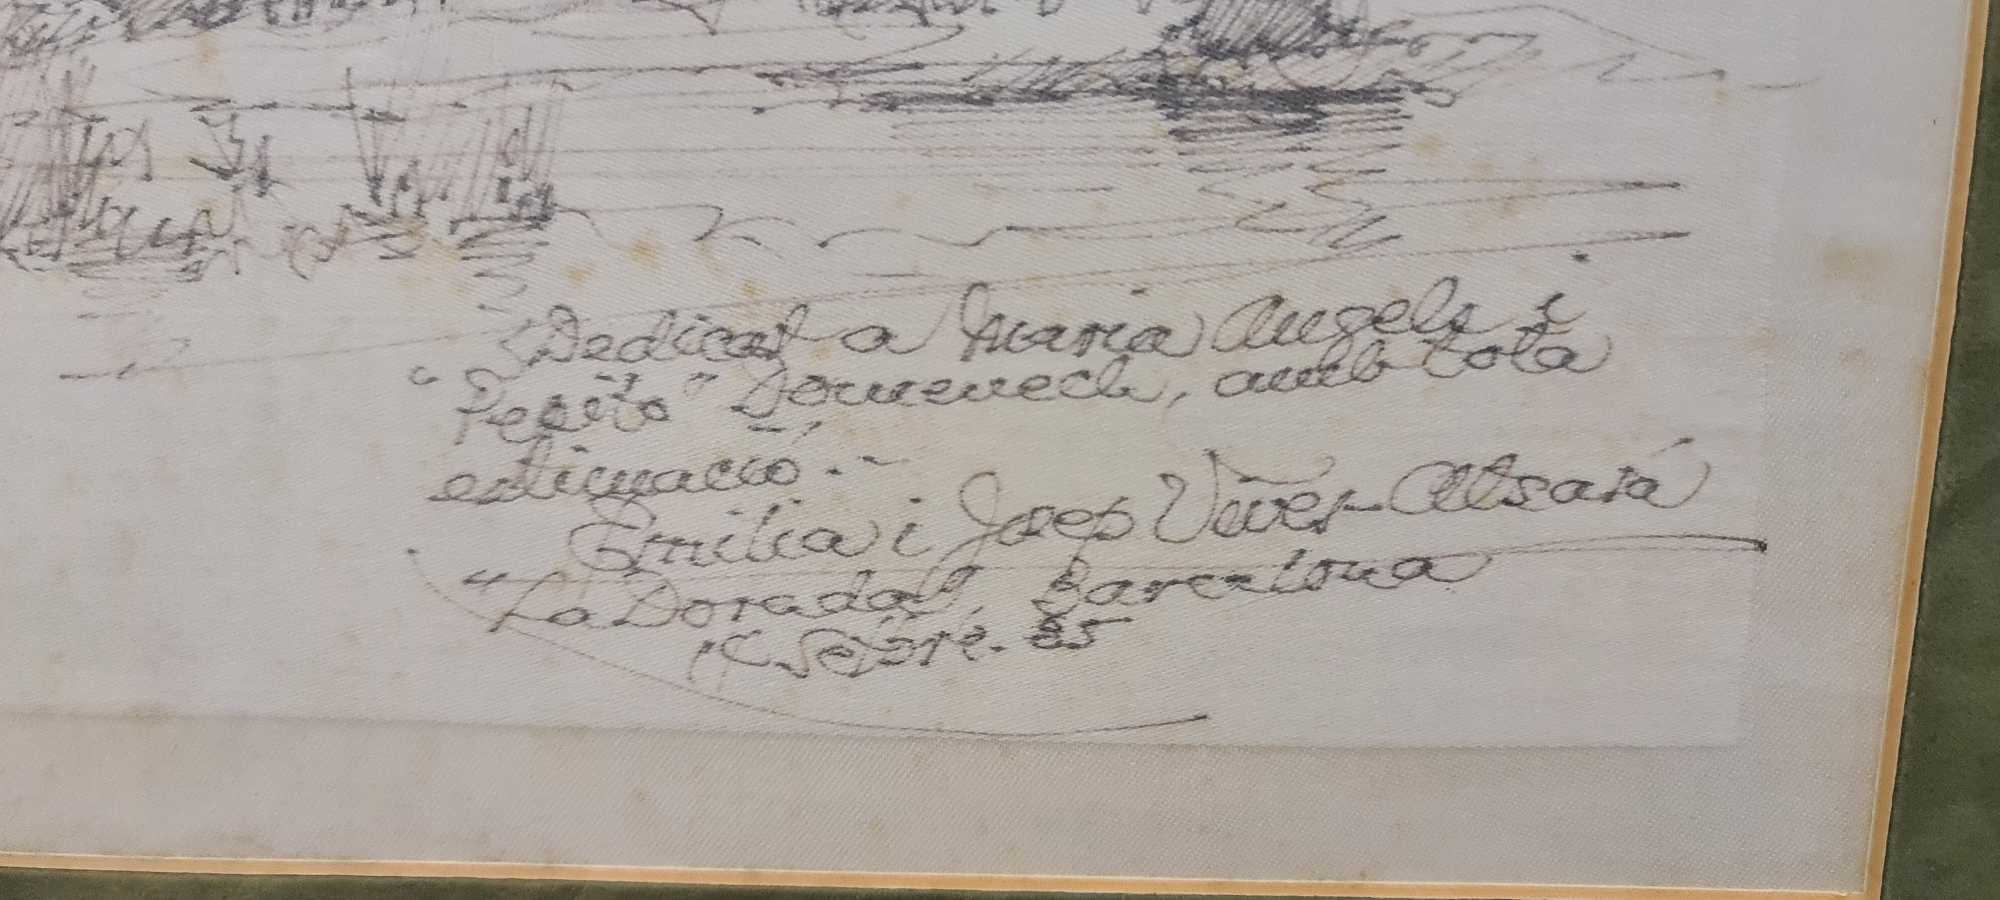 Dedicat a Maria Angels i
"Pepito" Domenech, amb tota
estimació.-
Emilia i Josep Viver-Alsará
"La Dorada", Barcelona
Setbre. 85